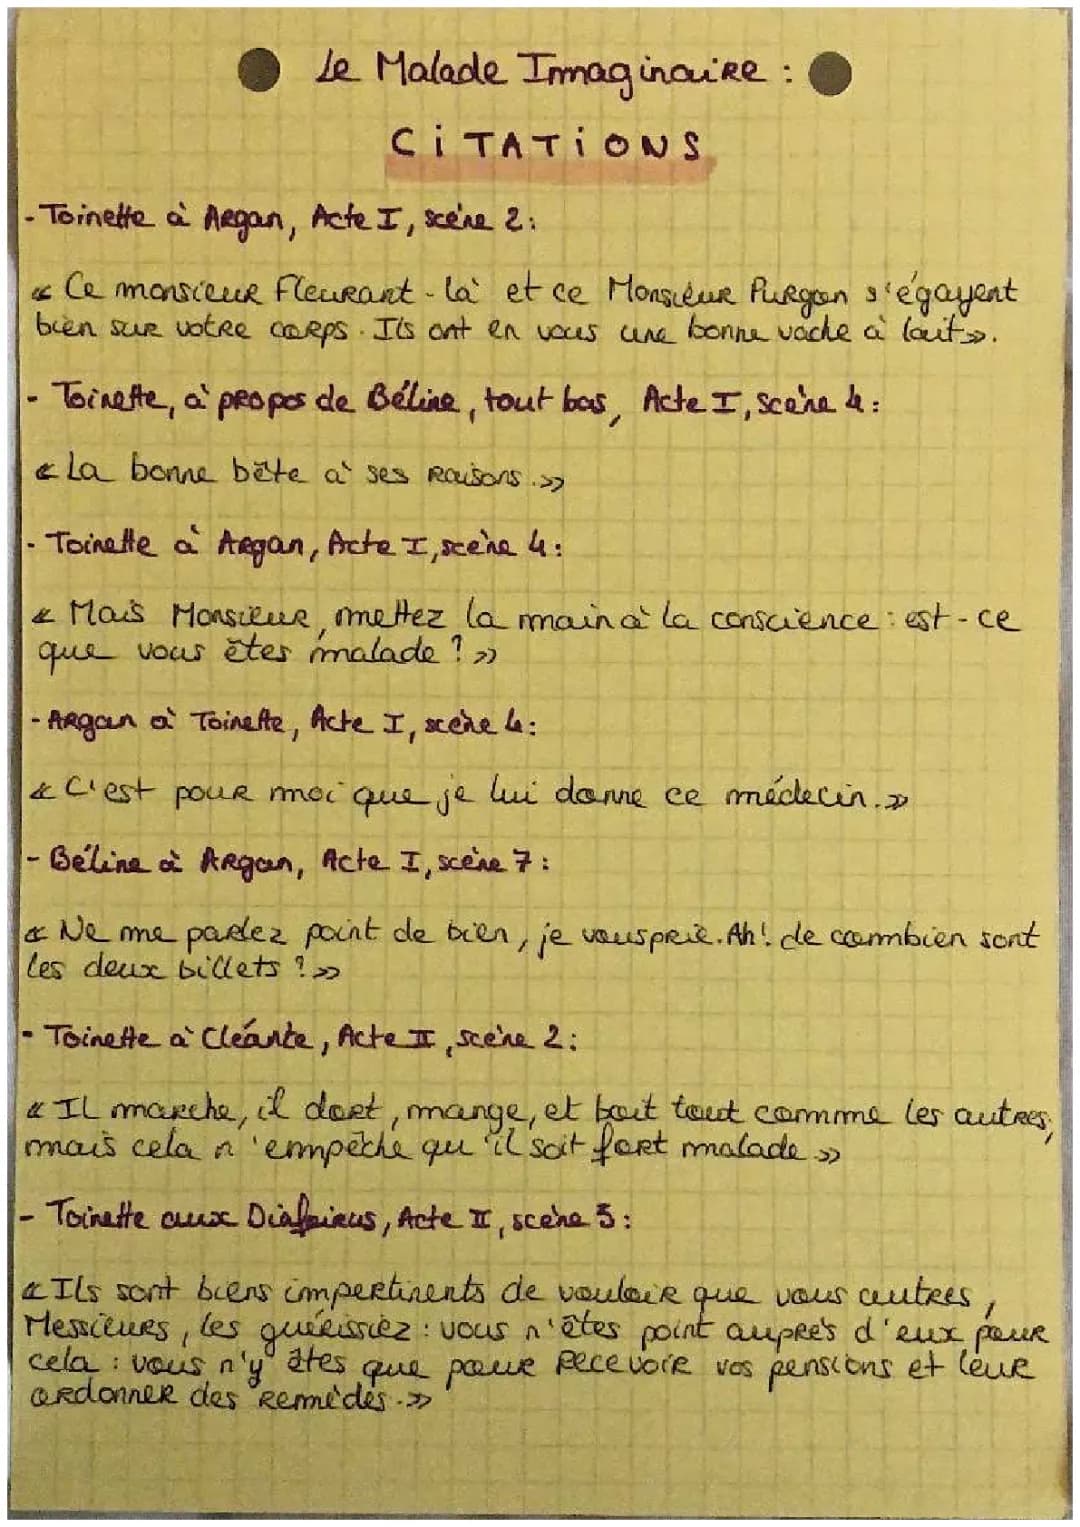 Le Malade Imaginaire :
CITATIONS
- Toinette à Argan, Acte I, scène 2 :
« Ce monsieur Fleurant-là et ce Monsieur Purgon s'égayent
bien sur votre corps. Ils ont en vous une bonne vache à lait ».
- Toinette, à propos de Béline, tout bas, Acte I, scène 4 :
« La bonne bête à ses raisons. »
- Toinette à Argan, Acte I, scène 4 :
« Mais Monsieur, mettez la main à la conscience : est-ce
que vous êtes malade ? »
- Argan à Toinette, Acte I, scène 4 :
« C'est pour moi que je lui donne ce médecin. »
- Béline à Argan, Acte I, scène 7 :
« Ne me parlez point de bien, je vous prie. Ah! de combien sont
les deux billets ? »
- Toinette à Cléante, Acte II, scène 2 :
« Il marche, il dort, mange, et boit tout comme les autres;
mais cela n'empêche qu'il soit fort malade. »
- Toinette aux Diafoirus, Acte II, scène 5 :
« Ils sont biens impertinents de vouloir que vous autres,
Messieurs, les guérissiez : vous n'êtes point auprès d'eux pour
cela : vous n'y êtes que pour recevoir vos pensions et leur
ordonner des remèdes. »